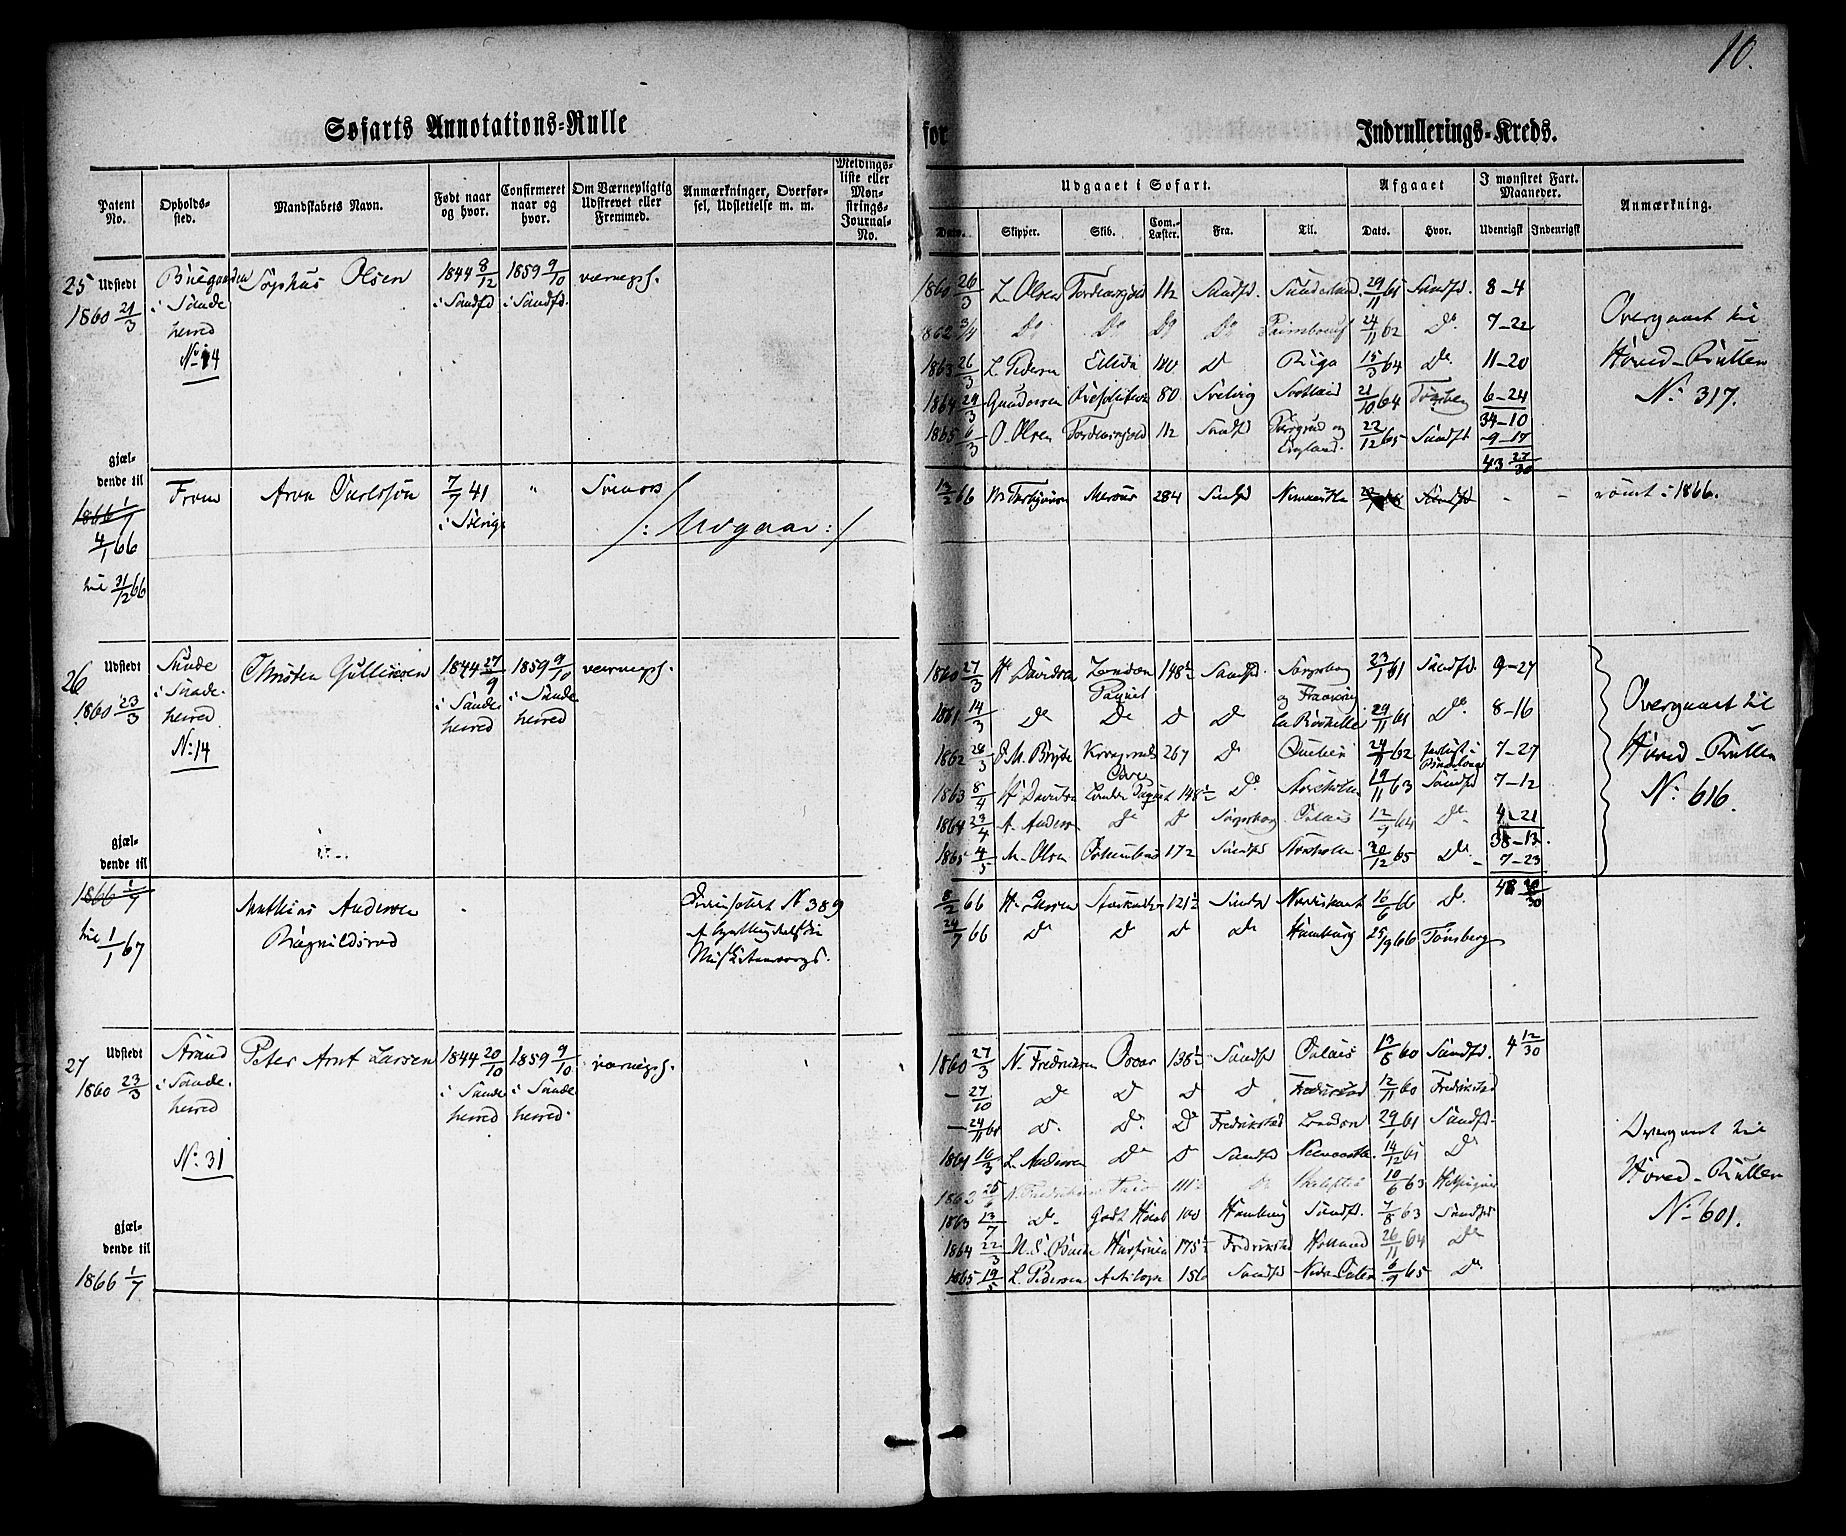 10.
Søfarts Annotations-Rulle
for
Indrullerings-Kreds.
Patent No.
Opholds-sted.
Mandskabets Navn.
Født naar og hvor.
Confirmeret naar og hvor.
Om Værnepligtig Udskrevet eller Fremmed.
Anmærkninger, Overførsel, Udslettelse m. m.
Meldingsliste eller Mønstrings-Journal-No.
Udgaaet i Søfart.
Afgaaet
I mønstret Fart. Maaneder.
Anmærkning.
Dato.
Skipper.
Skib.
Com.-Læster.
Fra.
Til.
Dato.
Hvor.
Udenrigsk
Indenrigsk
25 Udstedt
1860 21/3
i Sande
herred
No 14
Sophus Olsen
1844 8/12
i Sandfd
1859 9/10
i Sandfd.
værnepl.
1860 26/3 L. Olsen Tordenskjold 112 Sandfd. Sunderland 29/11 61 Sandfd. 8-4
1862 3/4 Do Do Do Do 24/11 62 Do 7-22
1863 26/3 L. Pedersen Ellida 140 Do Riga 15/3 64 Do 11-20
1864 29/3 Gundersen 80 Svelvig Scotland 21/10 64 Tønsberg 6-24
34-10
1865 6/3 O. Olsen Tordenskjold 112 Sandfd og England. 22/12 65 Sandfd 9-17
43 27/30
Overgaaet til
Hoved-Rullen
No 317.
gjæl-
dende til
1866 1/7
4/1 66
til 31/12 66
Aron Carlsson
7/7 41
i Sverig
"
Svensk
/: Undgaar :/
13/2 66 284 Sandfd Newcastle - - rømt i 1866.
26 Udstedt
1860 23/3
Sande
i Sande-
herred
No 14
Christen Gulliksen
1844 27/9
i Sande
herred
1859 9/10
i Sande
herred
værnepl.
1860 27/3 H Davidsen London Paquet 148½ Sandfd. Sarpsborg og 23/1 61 Sandfd. 9-27
1861 14/3 Do Do Do Do La Rochelle 29/11 61 Do 8-16
1862 28/3 267 Do Quebec 24/11 62 7-27
1863 8/4 H Davidsen London Paquet 148½ Do Stockholm 19/11 63 Sandfd 7-12
1864 23/4 A. Andersen Do Do Sarpsborg Calais 12/9 64 Do 4-21
38-13.
1865 4/5 M. Olsen Columbus 172 Sandfd Stockholm 20/12 65 Do 7-23
Overgaaet til
Hoved-Rullen
No 616.
gjæl-
dende til
1866 1/7
til 1/1 67
Mathias Andersen
Ragnhildsrød
No 389
8/2 66 H. Larsen 121½ Sandfd 16/6 66 Do
24/7 66 Do Do Do Do Hamburg 25/9 66 Tønsberg
27 Udstedt
1860 23/3
Strand
i Sande-
herred
No 31
Peter Arnt Larsen
1844 20/10
i Sande
herred
1859 9/10
i Sande
herred.
værnepl.
1860 27/3 N. Fredriksen Oscar 138½ Sandfd Calais 13/8 60 Sandfd. 4 12/30
- 27/10 Do Do Do Do Fredrikstad 12/11 60 Fredrikstad
- 24/11 60 Do Do Do Fredrikstad London 29/1 61 Sandfd.
1861 16/3 L. Andersen Do Do Sandfd Newcastle 14/12 61 Do
1862 N. Fredriksen 111½ Do 10/6 63 Helsingør
1863 13/7 Do Godt Haab 140 Hamburg Sandfd. 7/8 63 Sandfd
1864 22/3 175½ Fredrikstad Holland 26/11 64 Do
1865 19/5 L. Pedersen Antilope 156 Sandfd 6/9 65 Do
Overgaaet til
Hoved-Rullen
No 601.
gjæl-
dende til
1866 1/7